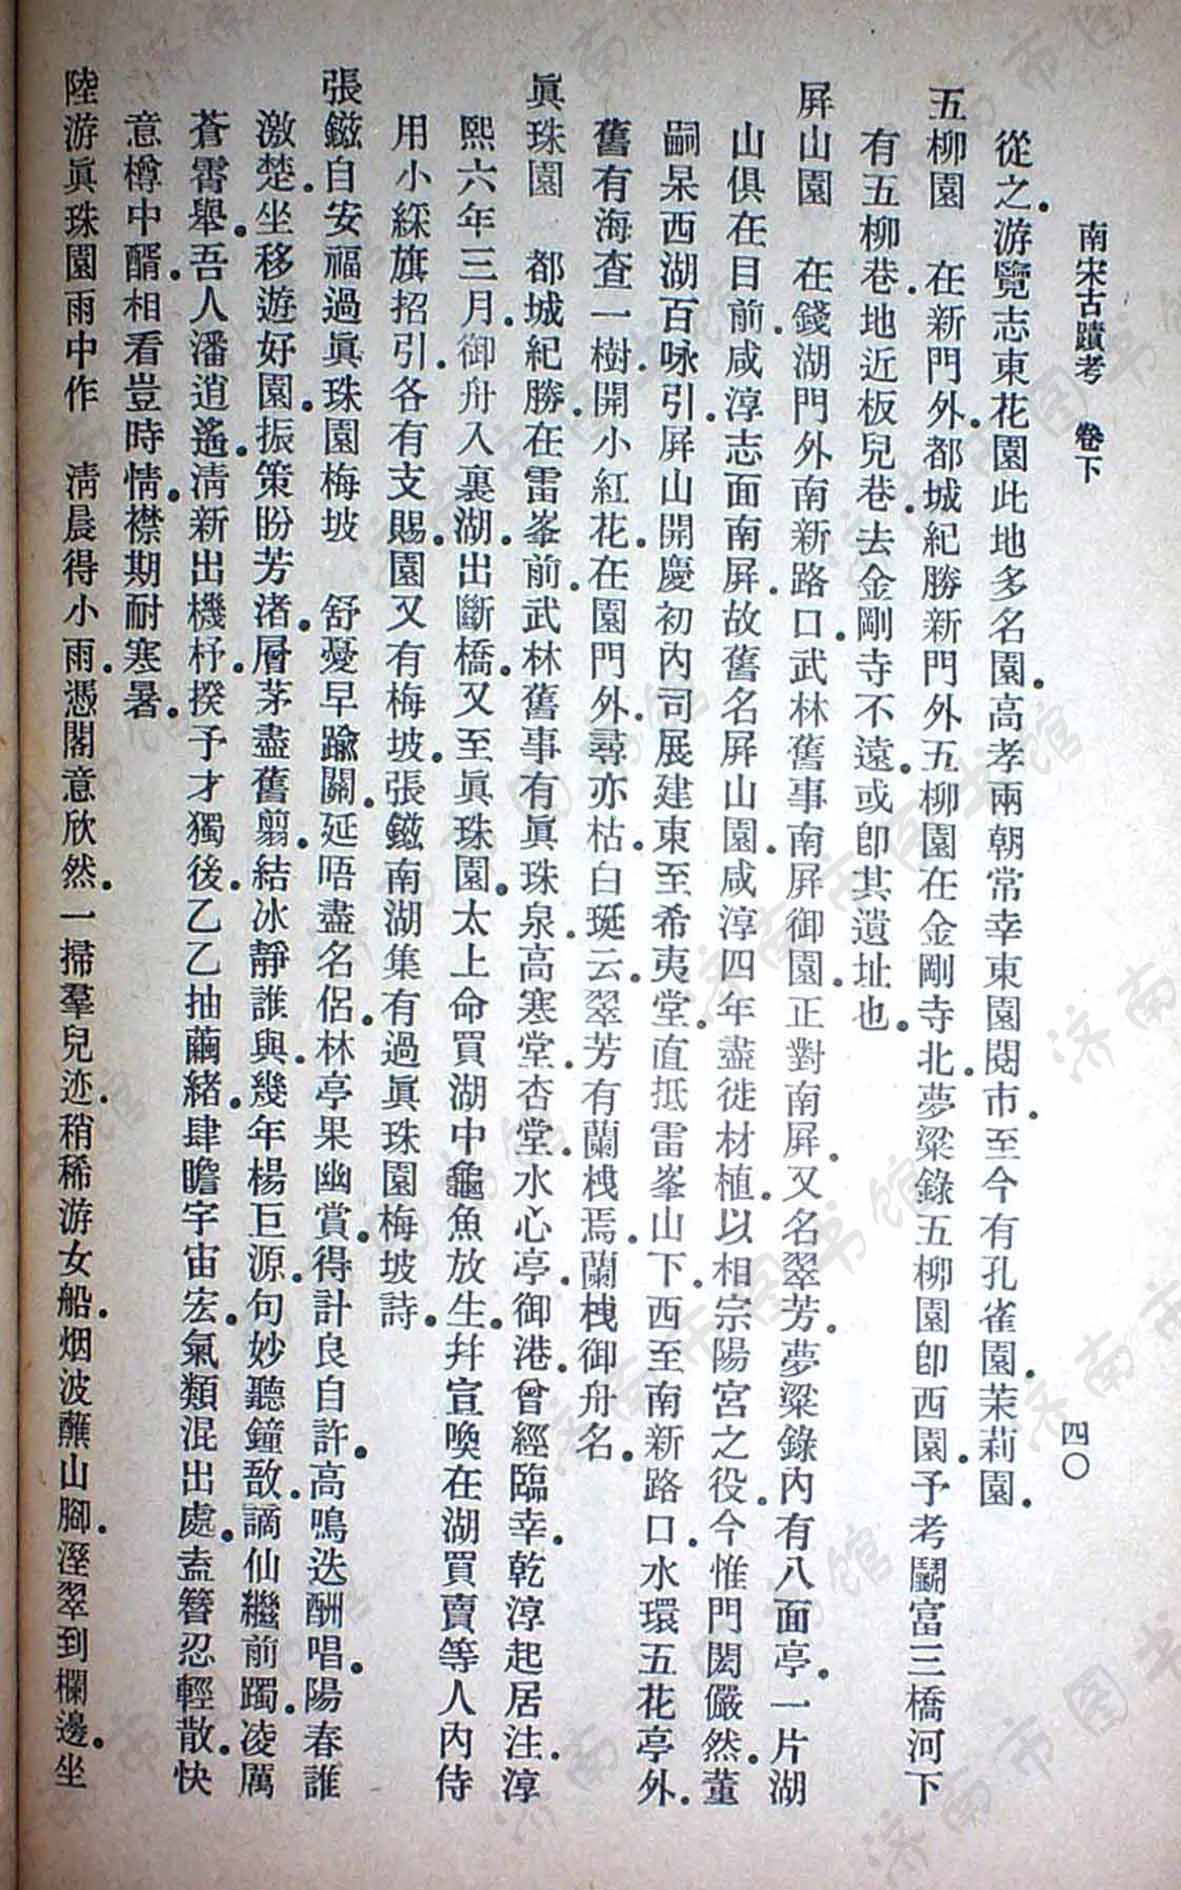 南宋古蹟考　卷下　四〇
從之。游覽志東花園此地多名園。高孝兩朝常幸東園閱市。至今有孔雀園。茉莉園。
五柳園　在新門外。都城紀勝新門外五柳園在金剛寺北。夢粱錄五柳園卽西園。予考鬭富三橋河下
有五柳巷。地近板兒巷。去金剛寺不遠。或卽其遺址也。
屛山園　在錢湖門外南新路口。武林舊事南屛御園。正對南屛。又名翠芳。夢粱錄內有八面亭。一片湖
山俱在目前。咸淳志面南屛。故舊名屛山園。咸淳四年盡徙材植。以相宗陽宮之役。今惟門閎儼然。董
嗣杲西湖百咏引。屛山開慶初內司展建。東至希夷堂。直抵雷峯山下。西至南新路口。水環五花亭外。
舊有海查一樹。開小紅花。在園門外。尋亦枯。白珽云。翠芳有蘭栧焉。蘭栧御舟名。
眞珠園　都城紀勝。在雷峯前。武林舊事有眞珠泉。高寒堂。杏堂。水心亭。御港。曾經臨幸。乾淳起居注。淳
熙六年三月。御舟入裏湖。出斷橋。又至眞珠園。太上命買湖中龜魚放生。幷宣喚在湖買賣等人。內侍
用小綵旗招引。各有支賜。園又有梅坡。張鎡南湖集有過眞珠園梅坡詩。
張鎡白安福過眞珠園梅坡　舒憂早踰關。延晤盡名侶。林亭果幽賞。得計良自許。高鳴迭酬唱。陽春誰
激楚。坐移遊好園。振策盼芳渚。層茅盡舊翦。結冰靜誰與。幾年楊巨源。句妙聽鐘敔。謫仙繼前躅。凌厲
蒼霄舉。吾人潘逍遙。淸新出機杼。揆予才獨後。乙乙抽繭緒。肆瞻宇宙宏。氣類混出處。盍簪忍輕散。快
意樽中醑。相看豈時情。襟期耐寒暑。
陸游眞珠園雨中作　淸晨得小雨。憑閣意欣然。一掃羣兒迹。稍稀游女船。烟波蘸山腳。溼翠到欄邊。坐